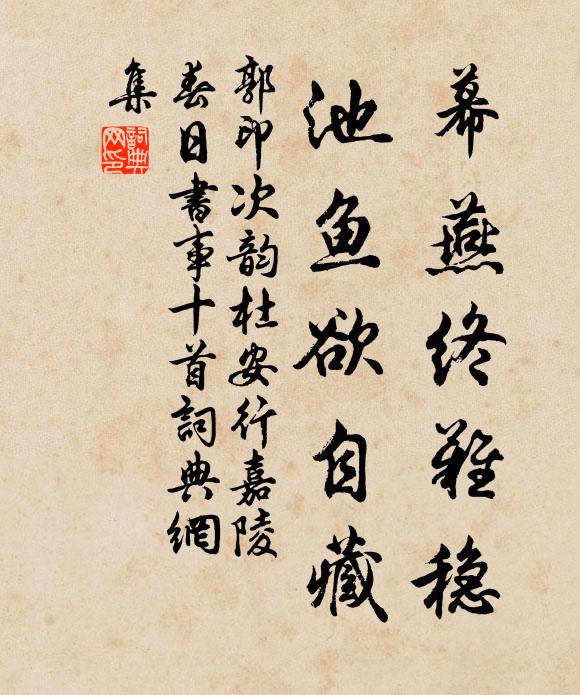 幕燕终难稳
池鱼欲自藏
郭印次韵杜安行嘉陵
春日书事十首詞典網
集
詞典网印